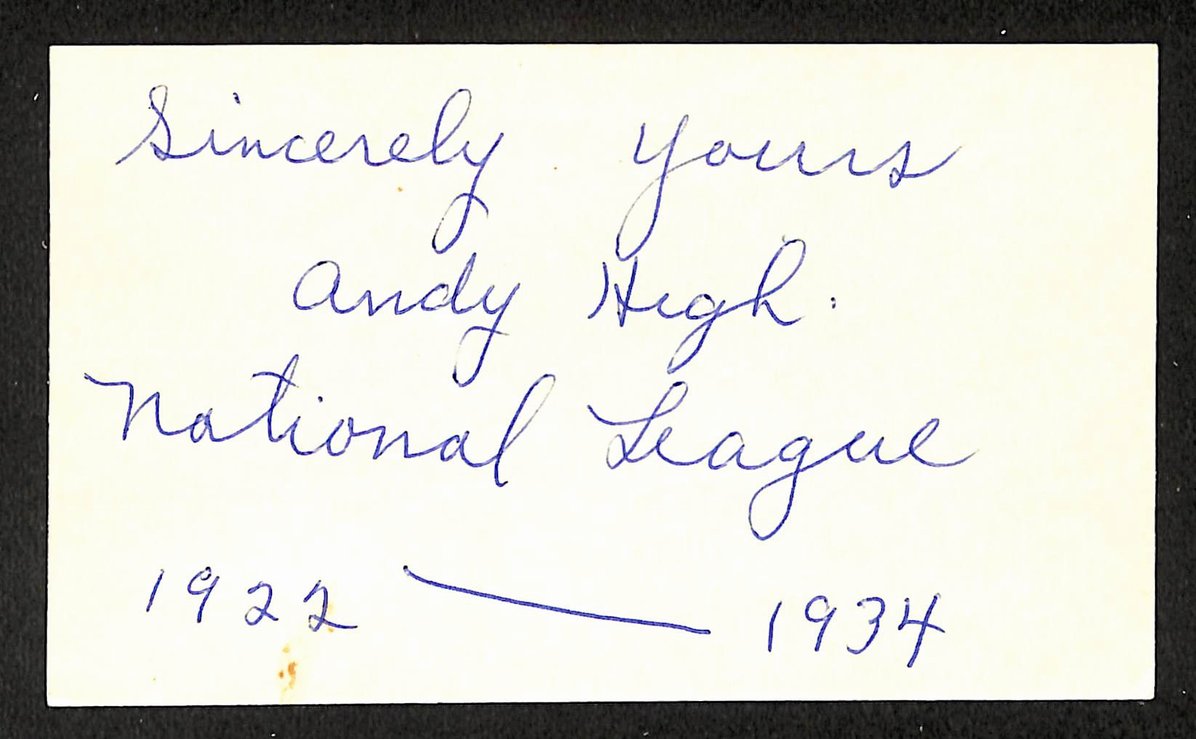 Sincerely Yours
Andy High.
National League
1922 — 1934